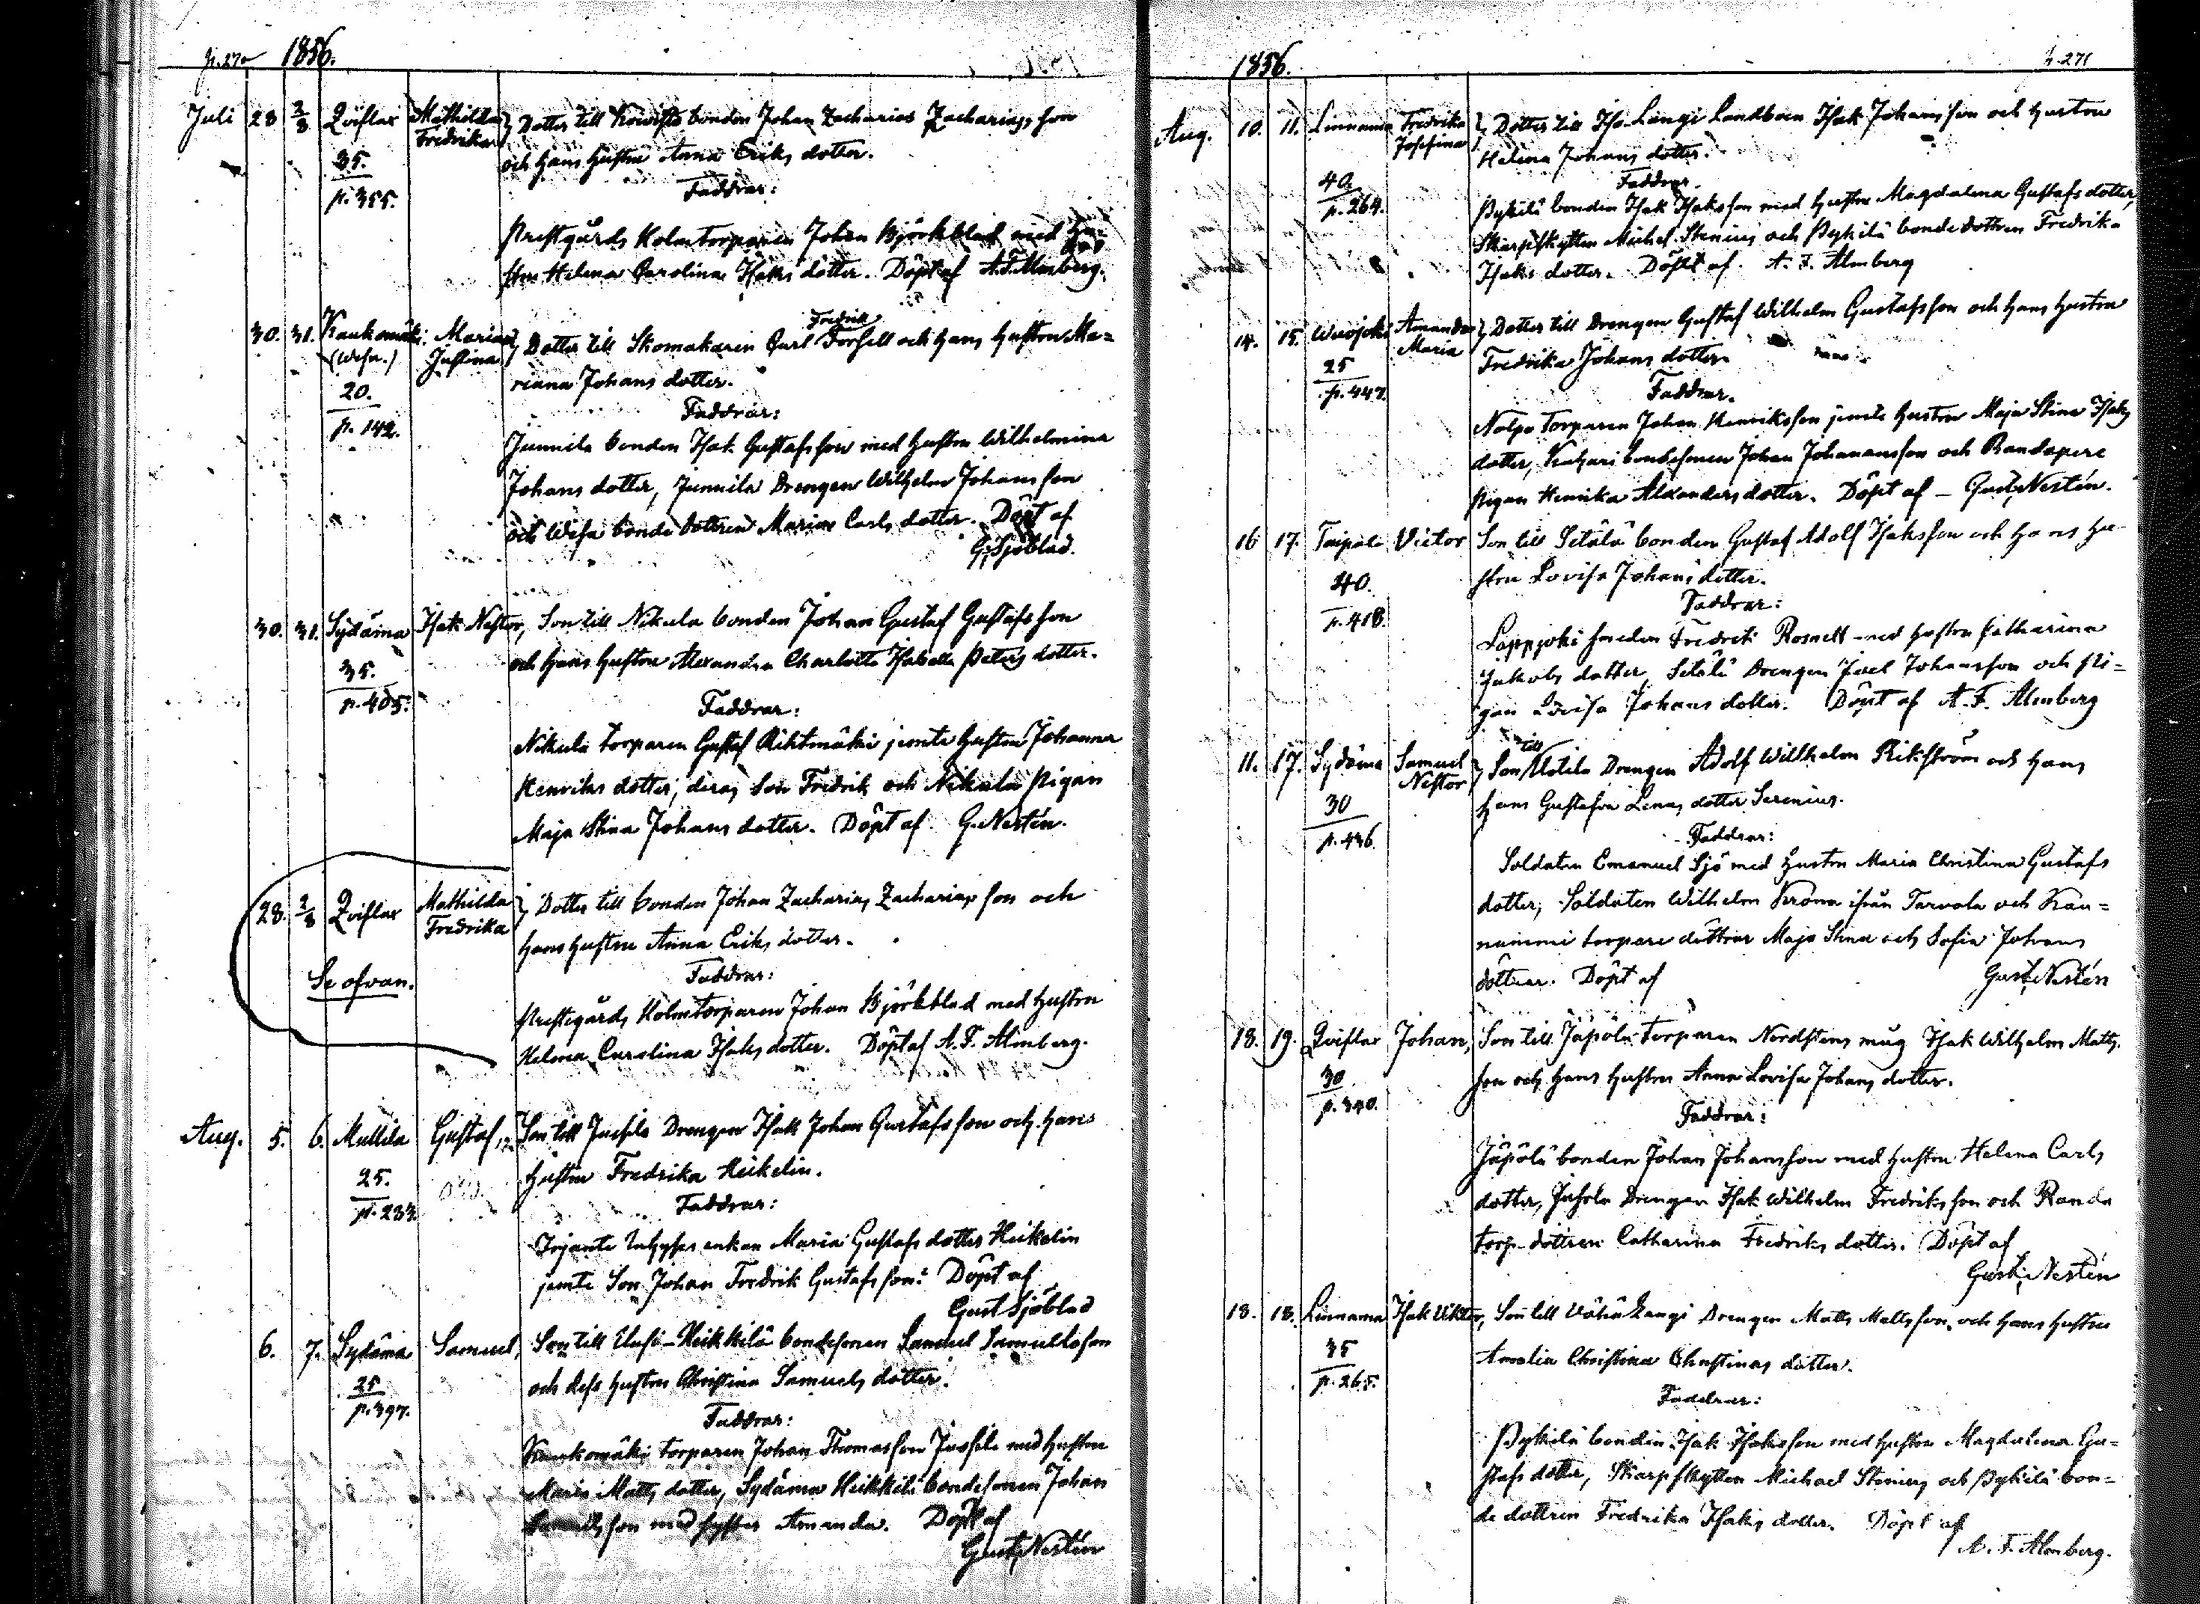 p. 270 1856.
Juli 28 2/8 Qviflax Mathilda Fredrika } Dotter till Krouvists bonden Johan Zacharias Zachariasson
35. p. 355. och hans hustru Anna Eriks dotter.
Faddrar:
Prestgårds Holmtorparen Johan Björkblad med Hu-
stru Helena Carolina Isaks dotter. Döpt af A. F. Almberg.
30. 31. Kaukomäki (Wesa.) Maria Justina } Dotter till Skomakaren Carl Fredrik Forsell och hans hustru Ma=
20. p. 142. riana Johans dotter.
Faddrar:
Junnila bonden Isak Gustafsson med hustru Wilhelmina
Johans dotter, Junnila Drengen Wilhelm Johansson
och Wesa bonde dottren Maria Carls dotter. Döpt af
G. Sjöblad.
30. 31. Sydänma Isak Nestor, Son till Nikula bonden Johan Gustaf Gustafsson
35. p. 405. och hans hustru Alexandra Charlotta Isabella Peters dotter.
Faddrar:
Nikula torparen Gustaf Rihtmäki jemte hustru Johanna
Henriks dotter, deras Son Fredrik och Nikula Pigan
Maja Stina Johans dotter. Döpt af G. Nestén.
28. 2/8 Qviflax Mathilda Fredrika } Dotter till bonden Johan Zacharias Zachariasson och
hans hustru Anna Eriks dotter.
Se ofvan.
Faddrar:
Prestegårds Holmtorparen Johan Björkblad med hustru
Helena Carolina Isaks dotter. Döpt af A. F. Almberg.
Aug. 5. 6. Mullila Gustaf, Son till Jussila Drengen Isak Johan Gustafsson och hans
25. p. 233. hustru Fredrika Heikelin.
Faddrar:
Inhyses enkan Maria Gustafs dotter Heikelin
jemte Son Johan Fredrik Gustafsson. Döpt af
Gust Sjöblad
6. 7. Sydänma Samuel, Son till Heikkilä bondesonen Samuel Samuelsson
25 p. 397. och dess hustru Christina Samuels dotter.
Faddrar:
Kaukomäki torparen Johan Thomasson Jussila med hustru
Maria Matts dotter, Sydänma Heikkilä bondesonen Johan
Samuelsson med syster Amanda. Döpt af
Gust. Nestén
1856. p. 271
Aug. 10. 11. Linnama Fredrika Josefina } Dotter till Iso-Längi Landboen Isak Johansson och hustru
Helena Johans dotter.
40. p. 264. Faddrar.
Pykilä bonden Isak Isaksson med hustru Magdalena Gustafs dotter,
Skarpskytten Michel Stenius och Pykilä bonde dottren Fredrika
Isaks dotter. Döpt af A. F. Almberg
14. 15. Wuojoki Amanda Maria } Dotter till Drengen Gustaf Wilhelm Gustafsson och hans hustru
25 p. 447. Fredrika Johans dotter.
Faddrar.
Nolpo Torparen Johan Henriksson jemte hustru Maja Stina Isaks
dotter, Katzari bondesonen Johan Johansson och Randapere
Pigan Henrika Alexanders dotter. Döpt af – Gust. Nestén.
16 17. Taipale Victor Son till Sitälä bonden Gustaf Adolf Isaksson och hans hu-
40. p. 418. stru Lovisa Johans dotter.
Faddrar:
Lappjoki smeden Fredrik Rosnell med hustru Catharina
Jakobs dotter, Sitälä Drengen Joel Johansson och Pi=
gan Lovisa Johans dotter. Döpt af A. F. Almberg
11. 17. Sydänma Samuel Nestor } Son till Uotila Drengen Adolf Wilhelm Rikström och hans
30 p. 436. hans Gustafva Lenas dotter Serenius.
Faddrar:
Soldaten Emanuel Sjö med hustru Maria Christina Gustafs
dotter, Soldaten Wilhelm Krona ifrån Tarvola och Kau=
nummi torpare döttrar Maja Stina och Sofia Johans
döttrar. Döpt af Gust. Nestén
18. 19. Qviflax Johan, Son till Jäpölä Torparen Nordstens måg Isak Wilhelm Matts
30 p. 340. son och hans hustru Anna Lovisa Johans dotter.
Faddrar:
Jäpölä bonden Johan Johansson med hustru Helena Carls
dotter, Juhola Drengen Isak Wilhelm Fredriksson och Randa
torp-dottren Catharina Fredriks dotter. Döpt af
Gust. Nestén
18. 18. Linnama Isak Viktor, Son till Vähä Längi Drengen Matts Mattsson och hans hustru
35 p. 265. Amalia Christina Christinas dotter.
Faddrar:
Pykilä bonden Isak Isaksson med hustru Magdalena Gu=
stafs dotter, Skarpskytten Michael Stenius och Pykilä bon=
de dottren Fredrika Isaks dotter. Döpt af
A. F. Almberg.